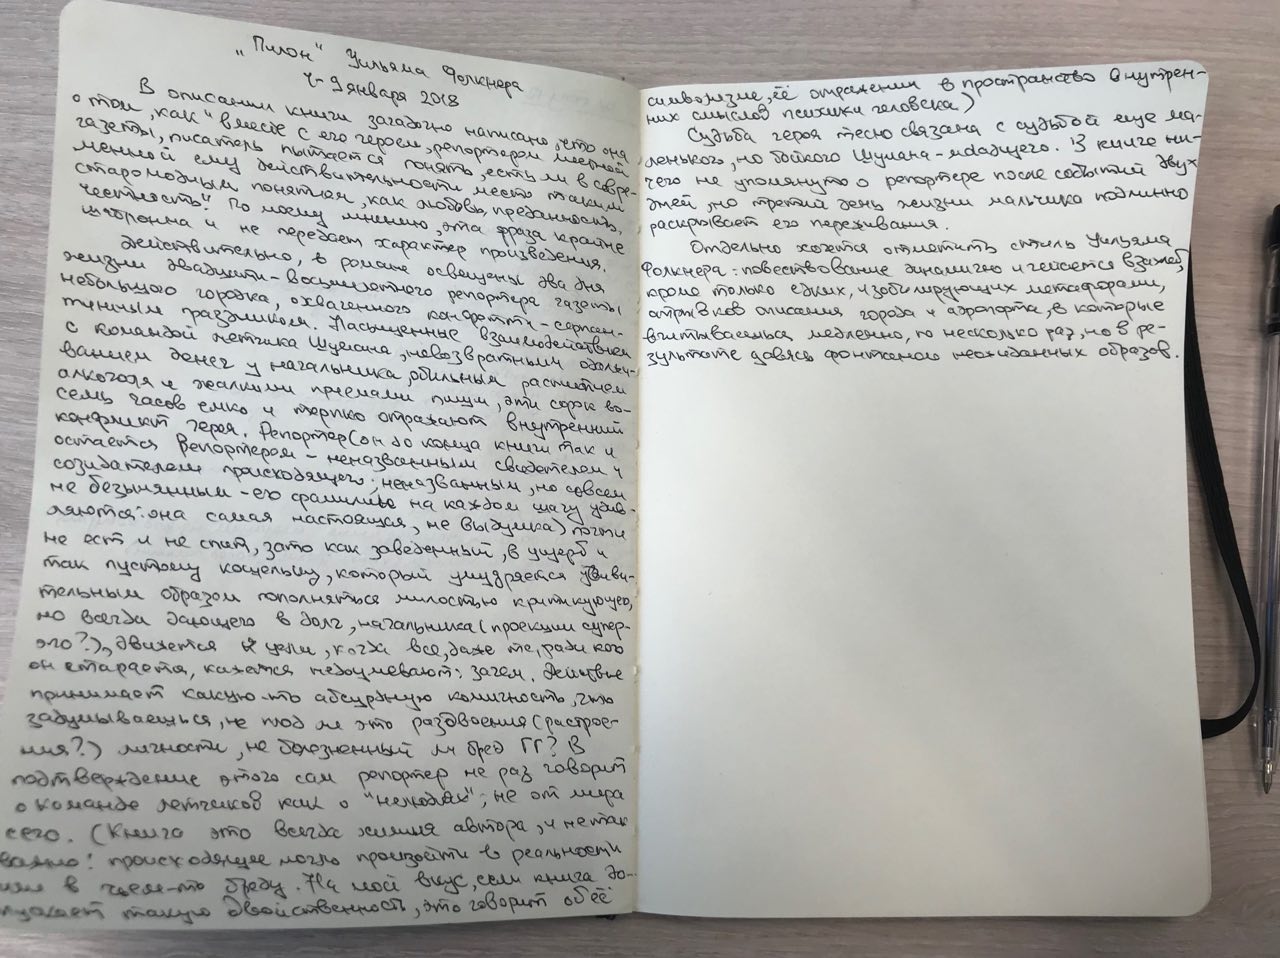 „Пилон“ Уильяма Фолкнера
4-9 января 2018
В описании книги загадочно написано, что она
о том, „как“ вместе с его героем, репортером местной
газеты, писатель пытается понять, есть ли в совре-
менной ему действительности место таким
старомодным понятиям, как любовь, преданность,
честность“. По моему мнению, эта фраза крайне
шаблонна и не передает характер произведения.
Действительно, в романе освещены два дня
жизни двадцати-восьмилетнего репортера газеты
небольшого городка, охваченного конфетти-серпан-
тинным праздником. Насыщенные взаимодействием
с командой летчика Шумана, невозвратным одалжи-
ванием денег у начальника, обильным распитием
алкоголя и жалкими приемами пищи, эти сорок во-
семь часов емко и терпко отражают внутренний
конфликт героя. Репортер (он до конца книги так и
остается Репортером - неназванным свидетелем и
созидателем происходящего; неназванным, но совсем
не безымянным - его фамилию на каждом шагу удив-
ляются: она самая настоящая, не выдумка) почти
не ест и не спит, зато как заведенный, в ущерб и
так пустому кошельку, который умудряется удиви-
тельным образом пополняться милостью критикующего,
но всегда дающего в долг, начальника (проекции супер-
эго?), движется к цели, когда все, даже те, ради кого
он старается, кажется недоумевают: зачем. Действие
принимает какую-то абсурдную комичность, что
задумываешься, не плод ли это раздвоения (растрое-
ния?) личности, не болезненный ли бред ГГ? В
подтверждение этого сам репортер не раз говорит
о команде летчиков как о "нелюдях"; не от мира
сего. (Книга это всегда химия автора, и не так
важно: происходящее могло произойти в реальности
или в чьем-то бреду. На мой вкус, если книга до-
пускает такую двойственность, это говорит об её
символизме, её отражении в пространство внутрен-
них смыслов психики человека)
Судьба героя тесно связана с судьбой еще ма-
ленького, но бойкого Шумана-младшего. В книге ни-
чего не упомянуто о репортере после событий двух
дней, но третий день жизни мальчика подлинно
раскрывает его переживания.
Отдельно хочется отметить стиль Уильяма
Фолкнера: повествование динамично и читается взахлеб,
кроме только едких, изобилирующих метафорами,
отрывков описания города и аэропорта, в которые
вчитываешься медленно, по несколько раз, но в ре-
зультате давясь фонтаном неожиданных образов.